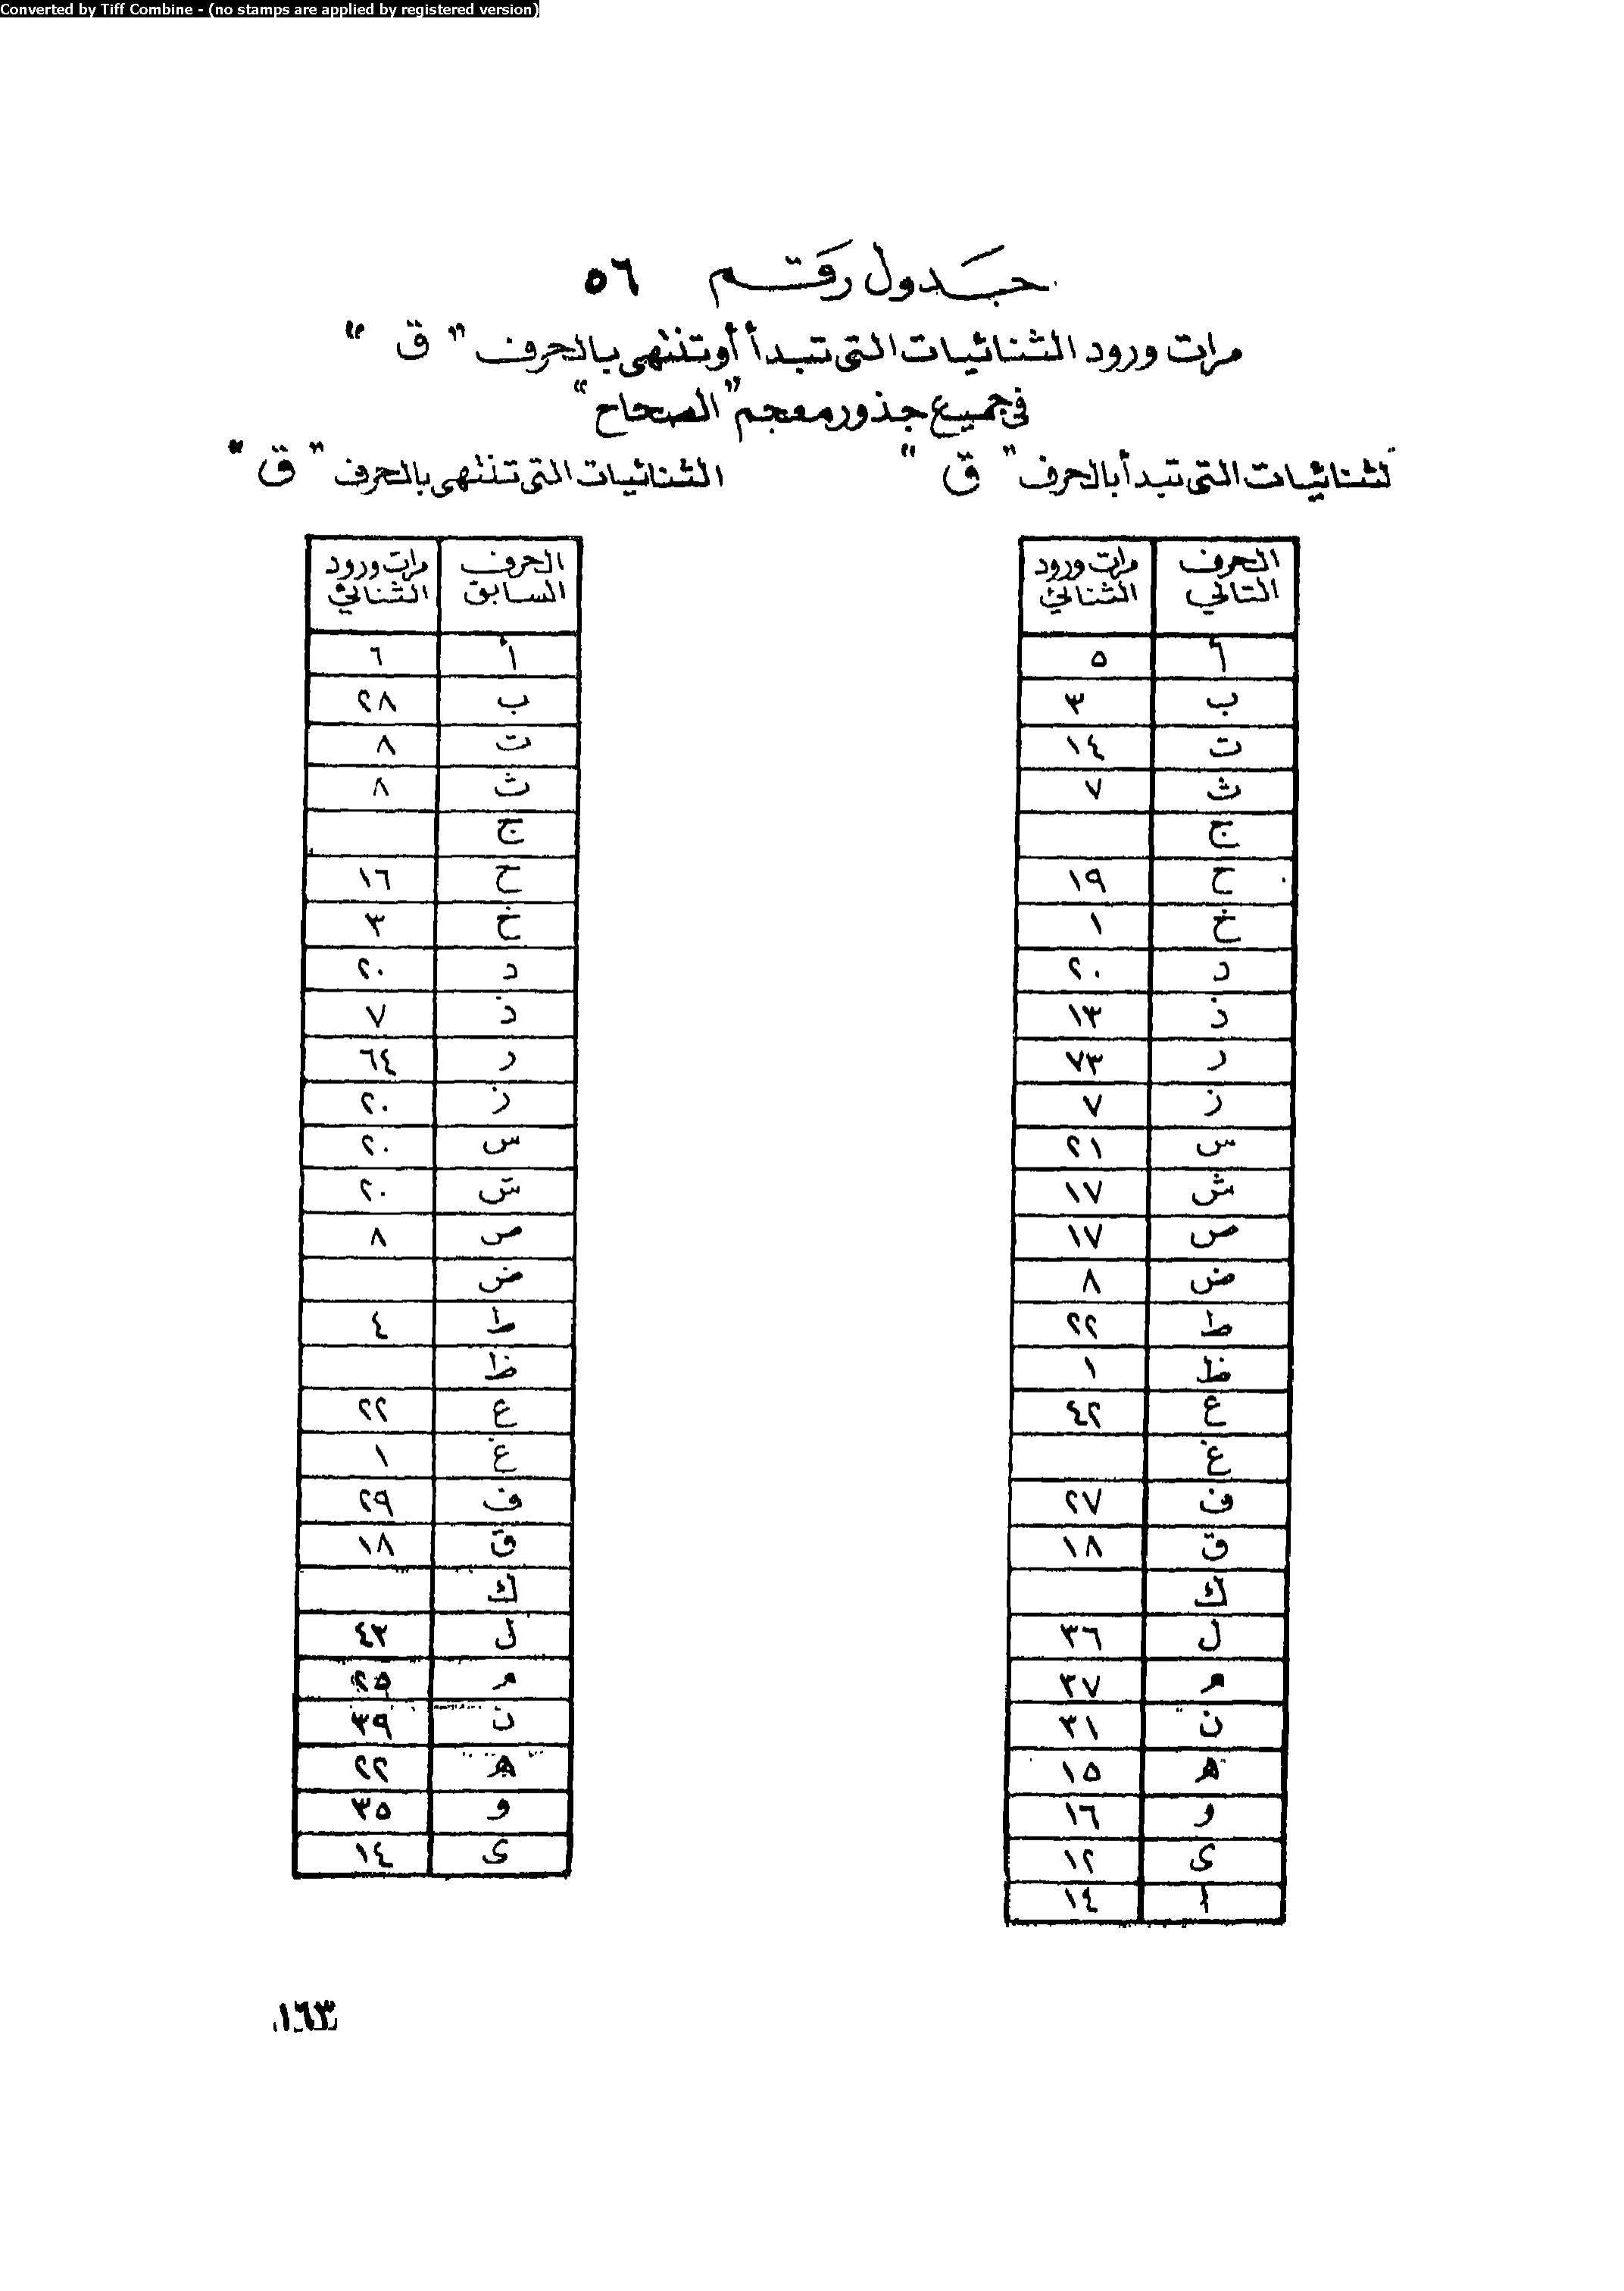 Converted by Tiff Combine - (no stamps are applied by registered version)
جدول رقم ٥٦
مرات ورود الثنائيات التى تبدأ أو تنتهى بالحرف " ق "
فى جميع جذور معجم "الصحاح"
لثنائيات التى تبدأ بالحرف " ق "
الحرف التالي مرات ورود الثنائي
أ ٥
ب ٣
ت ١٤
ث ٧
ج
ح ١٩
خ ١
د ٢٠
ذ ١٣
ر ٧٣
ز ٧
س ٢١
ش ١٧
ص ١٧
ض ٨
ط ٢٢
ظ ١
ع ٤٢
غ
ف ٢٧
ق ١٨
ك
ل ٣٦
م ٣٧
ن ٣١
ه ١٥
و ١٦
ى ١٢
ا ١٤
الثنائيات التى تنتهى بالحرف " ق "
الحرف السابق مرات ورود الثنائي
أ ٦
ب ٢٨
ت ٨
ث ٨
ج
ح ١٦
خ ٣
د ٢٠
ذ ٧
ر ٦٤
ز ٢٠
س ٢٠
ش ٢٠
ص ٨
ض
ط ٤
ظ
ع ٢٢
غ ١
ف ٢٩
ق ١٨
ك
ل ٤٣
م ٢٥
ن ٣٩
ه ٢٢
و ٣٥
ى ١٤
١٦٣